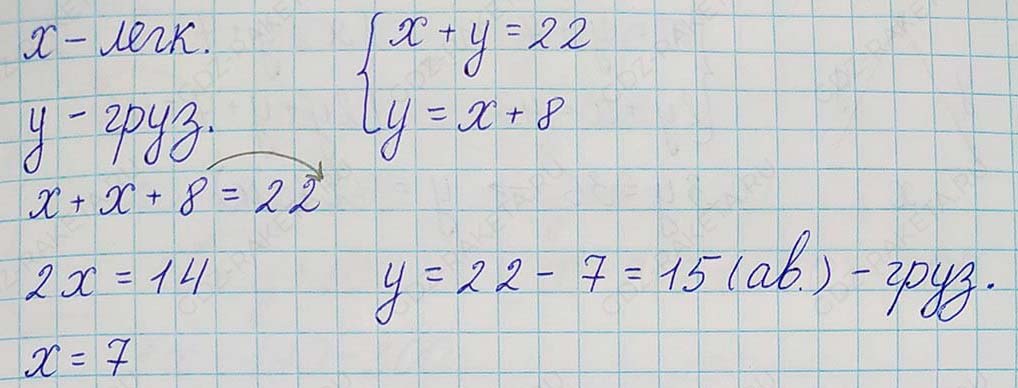 x - легк.
y - груз.
{ x + y = 22
y = x + 8
x + x + 8 = 22
2x = 14
y = 22 - 7 = 15 (ав.) - груз.
x = 7